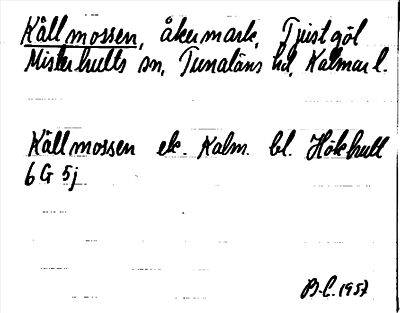 Källmossen, åkermark, Tjust göl
Misterhults sn, Tunaläns hd, Kalmar l.
Källmossen ek. Kalm. bl. Hökhult
6 G 5j
B.L. 1957